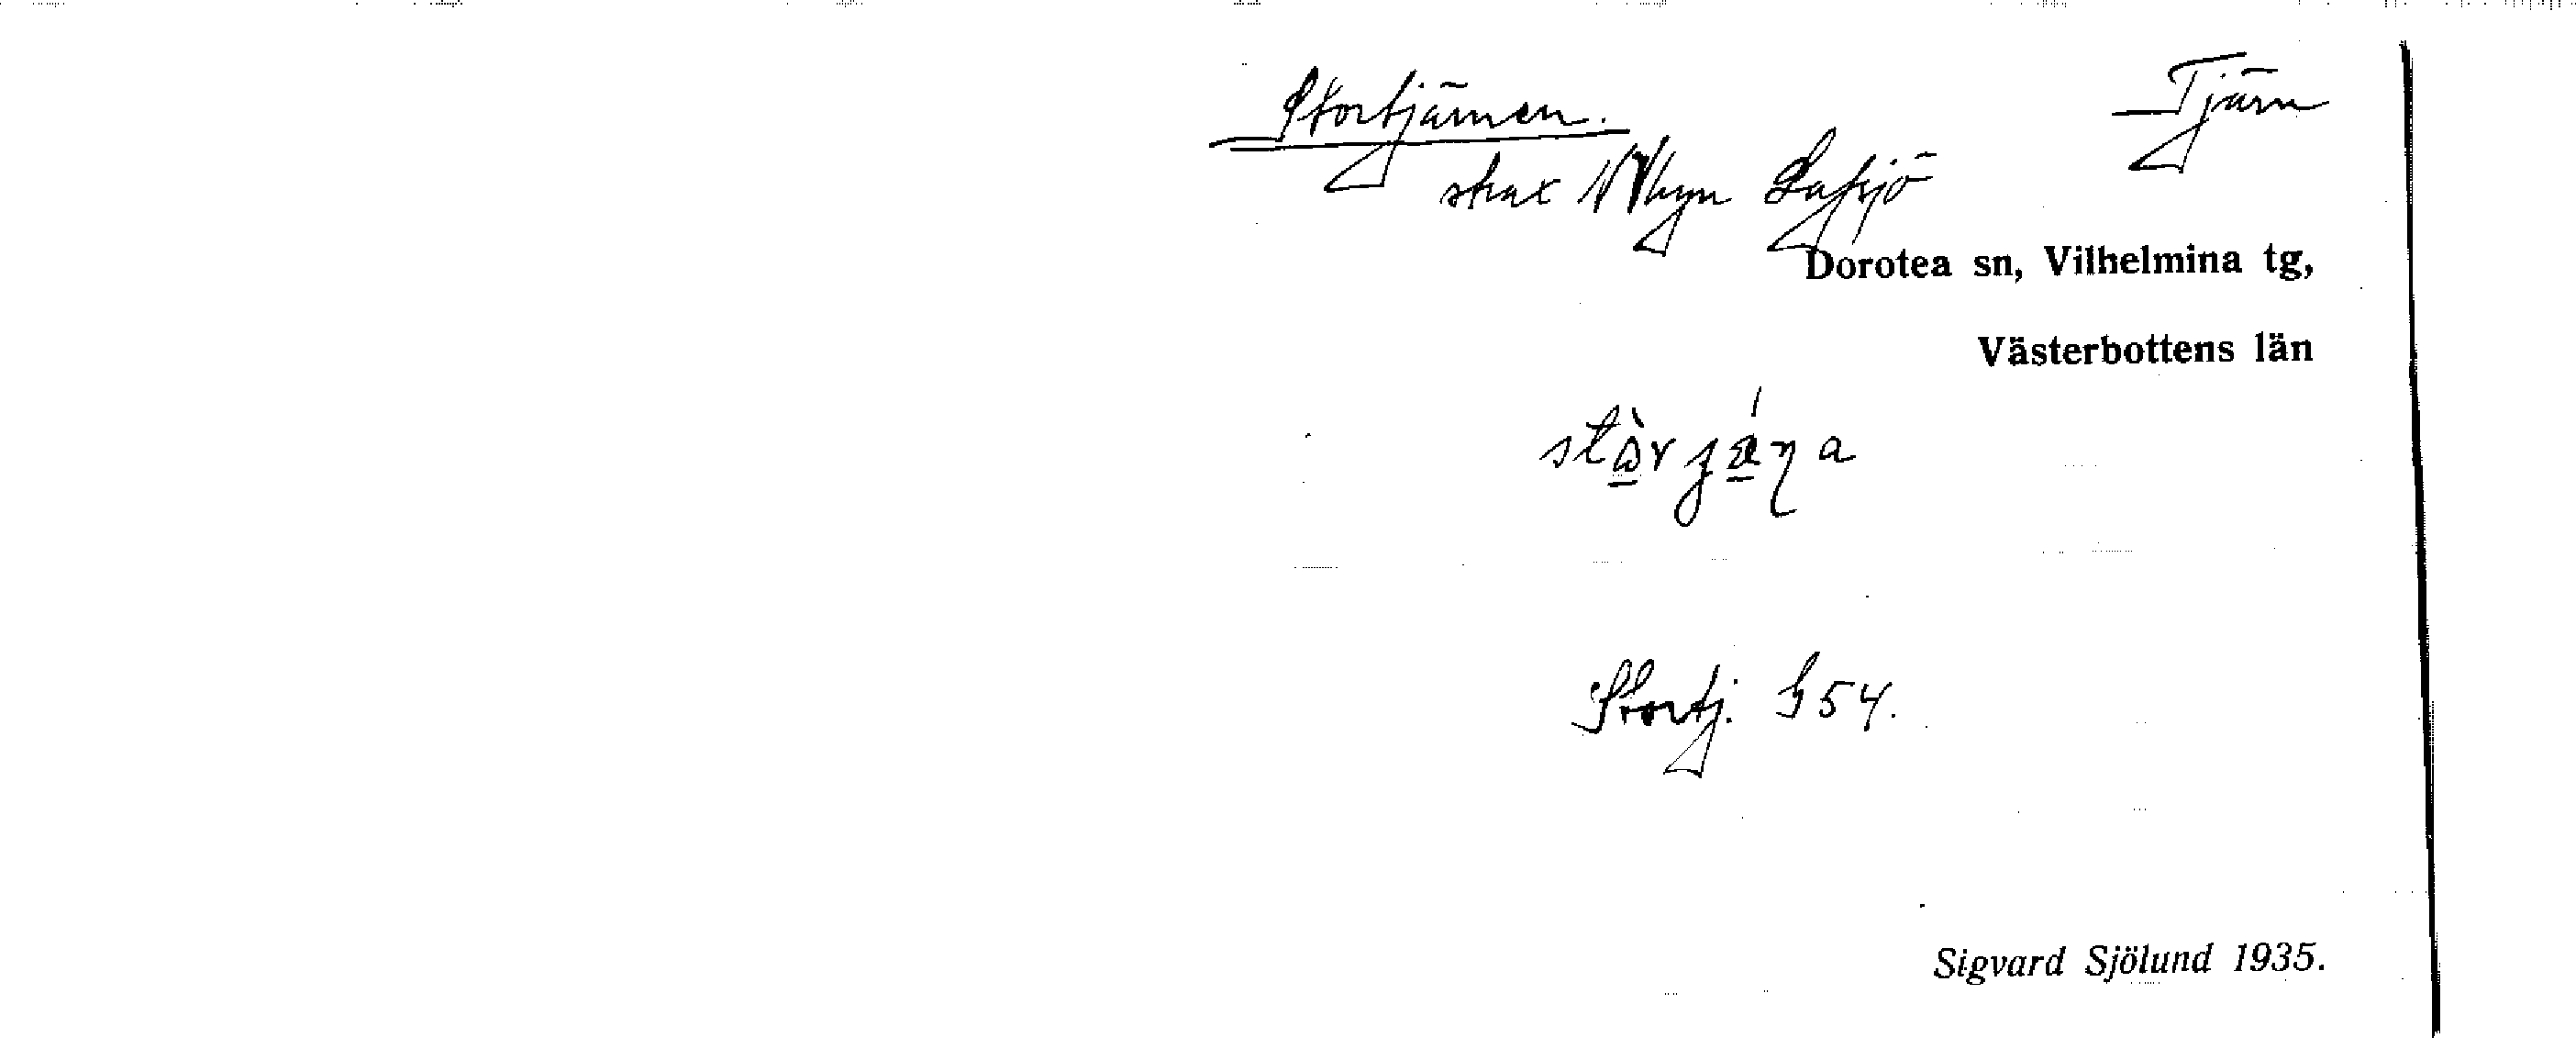 Stortjärnen. Tjärn
strax NV byn Lafsjö
Dorotea sn, Vilhelmina tg,
Västerbottens län
Stortj. G 54.
Sigvard Sjölund 1935.